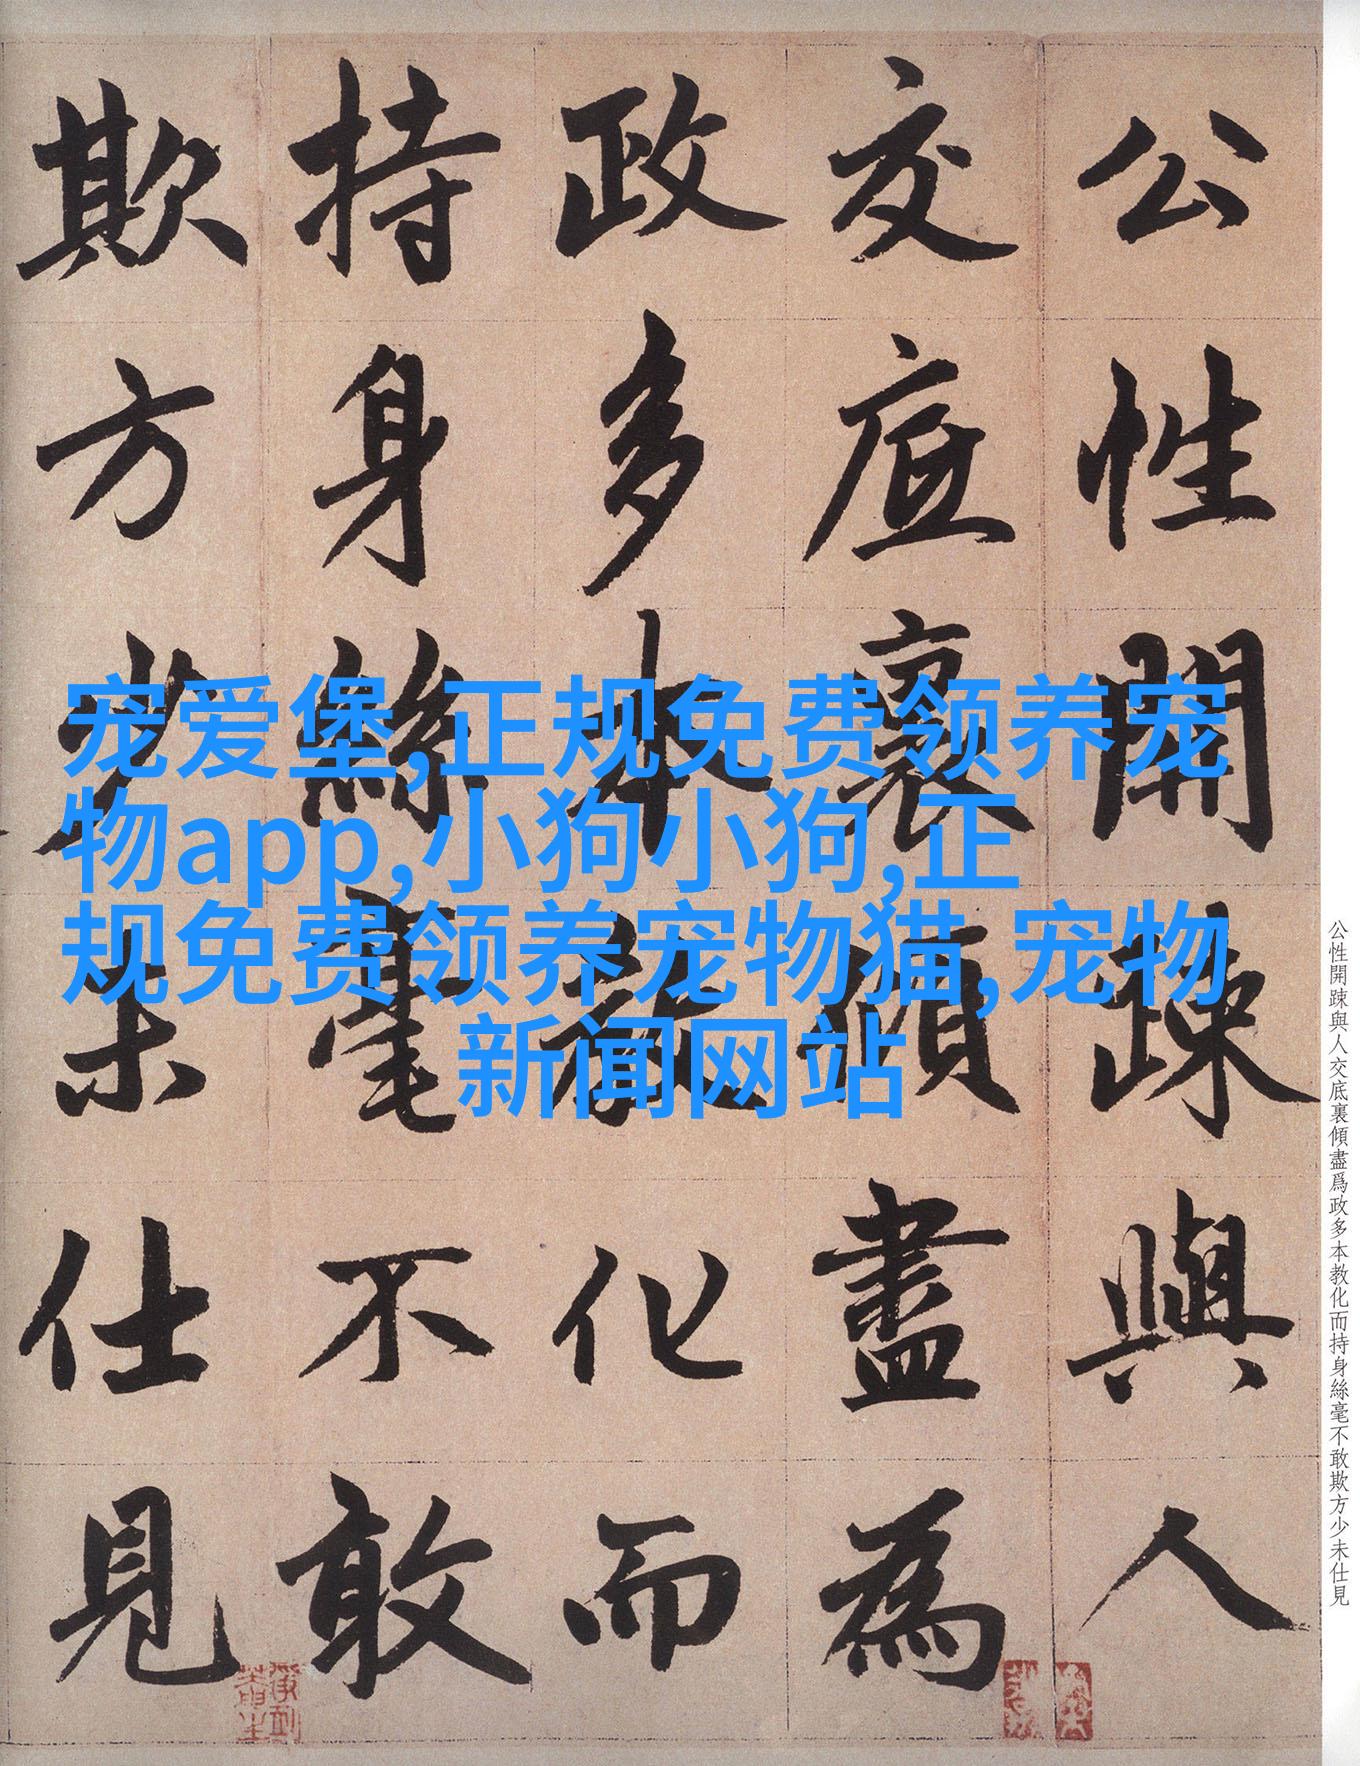 公性開踈與人
交底裏傾盡為
政多本教化而
持身絲毫不敢
欺方少未仕見
宠爱堡,正规免费领养宠
物app,小狗小狗,正
规免费领养宠物猫,宠物
新闻网站
公性開踈與人交底裏傾盡爲政多本教化而持身絲毫不敢欺方少未仕見